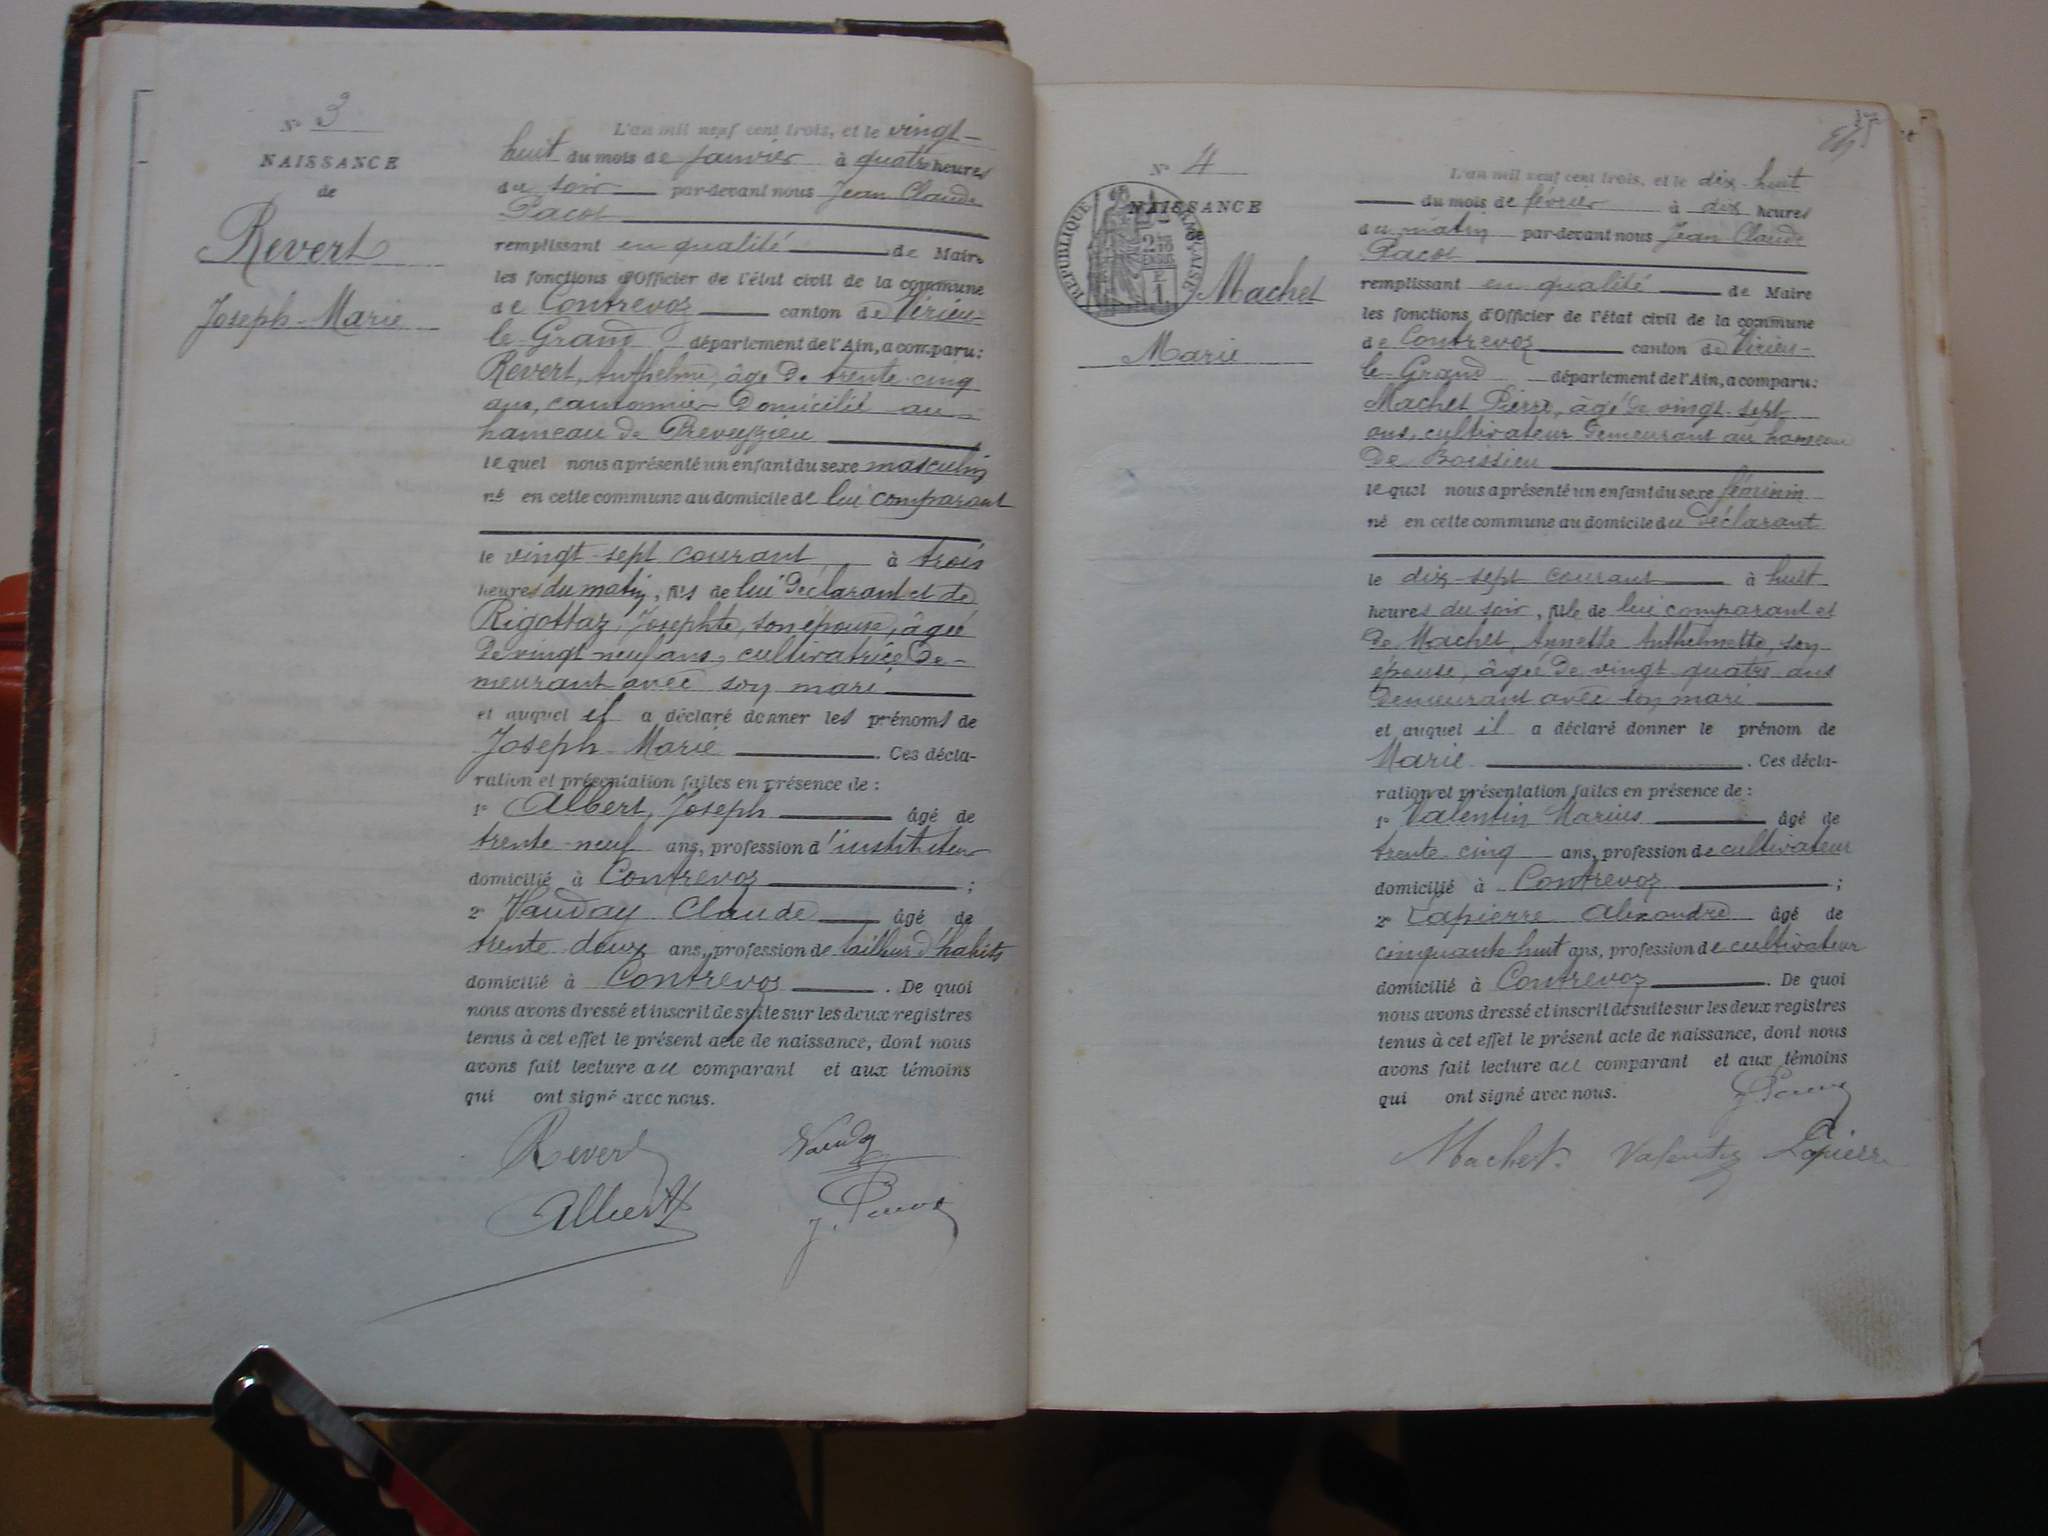 N° 3
NAISSANCE
de
Revert
Joseph-Marie
L'an mil neuf cent trois, et le vingt-
huit du mois de janvier à quatre heures
du soir par-devant nous Jean Claude
Pacot
remplissant en qualité de Maire
les fonctions d'Officier de l'état civil de la commune
de Contrevoz canton de Virieu-
le-Grand département de l'Ain, a comparu:
Revert, Anthelme, âgé de trente-cinq
ans, cantonnier domicilié au
hameau de Preveyzieu
lequel nous a présenté un enfant du sexe masculin
né en cette commune au domicile de lui comparant
le vingt-sept courant à trois
heures du matin, fils de lui déclarant et de
Rigottaz, Josephte, son épouse, âgée
de vingt neuf ans, cultivatrice de-
meurant avec son mari
et auquel il a déclaré donner les prénoms de
Joseph-Marie. Ces décla-
ration et présentation faites en présence de :
1° Albert, Joseph âgé de
trente-neuf ans, profession d'instituteur
domicilié à Contrevoz ;
2° Vauday Claude âgé de
trente deux ans, profession de tailleur d'habits
domicilié à Contrevoz. De quoi
nous avons dressé et inscrit de suite sur les deux registres
tenus à cet effet le présent acte de naissance, dont nous
avons fait lecture au comparant et aux témoins
qui ont signé avec nous.
Revert Vauday
Albert J.
N° 4
NAISSANCE
RÉPUBLIQUE FRANÇAISE
de
Machet
Marie
L'an mil neuf cent trois, et le dix-huit
du mois de février à dix heures
du matin par-devant nous Jean Claude
Pacot
remplissant en qualité de Maire
les fonctions d'Officier de l'état civil de la commune
de Contrevoz canton de Virieu-
le-Grand département de l'Ain, a comparu:
Machet Pierre, âgé de vingt-sept
ans, cultivateur demeurant au hameau
de Boissieu
lequel nous a présenté un enfant du sexe féminin
né en cette commune au domicile du déclarant
le dix-sept courant à huit
heures du soir, fille de lui comparant et
de Machet, Annette Anthelmette, son
épouse, âgée de vingt quatre ans
demeurant avec son mari
et auquel il a déclaré donner le prénom de
Marie. Ces décla-
ration et présentation faites en présence de :
1° Valentin Marius âgé de
trente-cinq ans, profession de cultivateur
domicilié à Contrevoz ;
2° Lapierre Alexandre âgé de
cinquante huit ans, profession de cultivateur
domicilié à Contrevoz. De quoi
nous avons dressé et inscrit de suite sur les deux registres
tenus à cet effet le présent acte de naissance, dont nous
avons fait lecture au comparant et aux témoins
qui ont signé avec nous.
Machet Valentin Lapierre